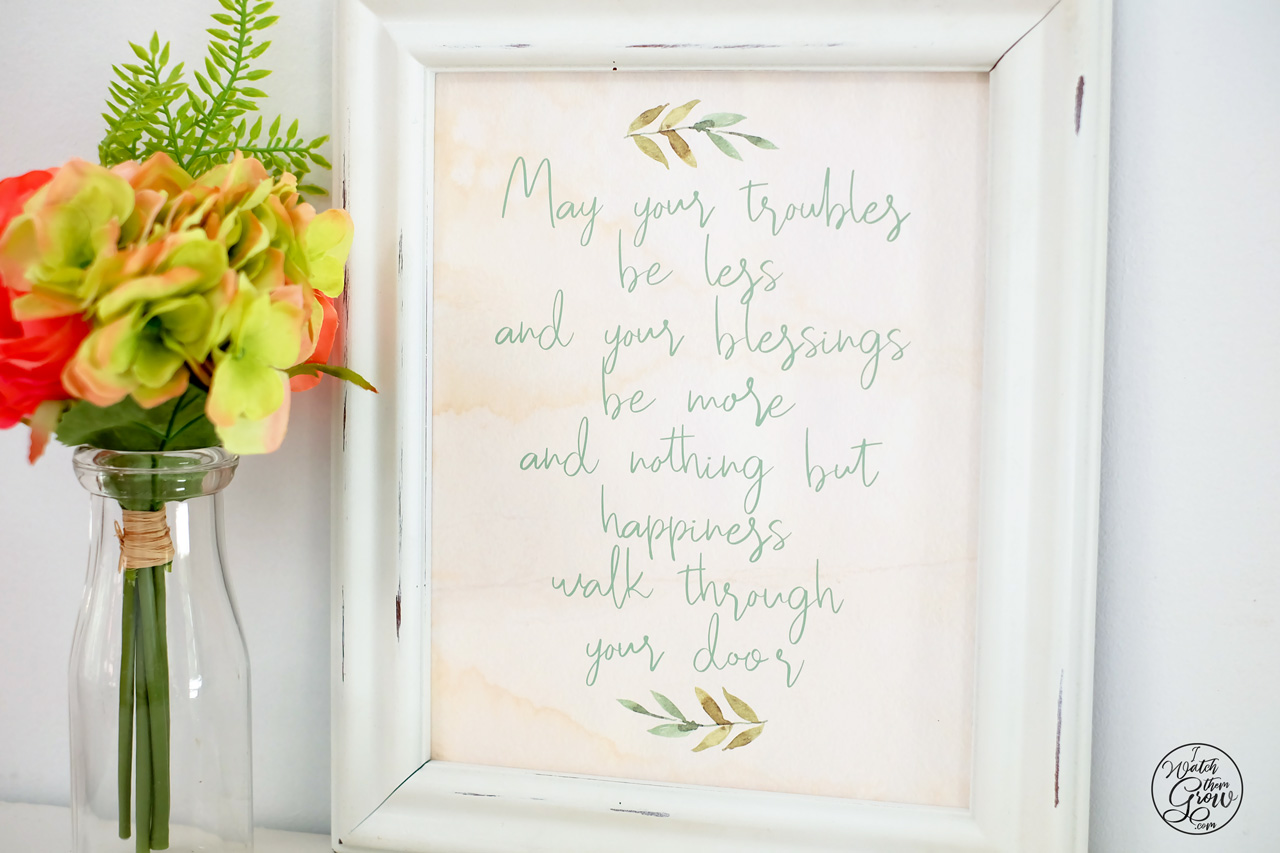 May your troubles
be less
and your blessings
be more
and nothing but
happiness
walk through
your door
I
Watch
them
Grow
.com